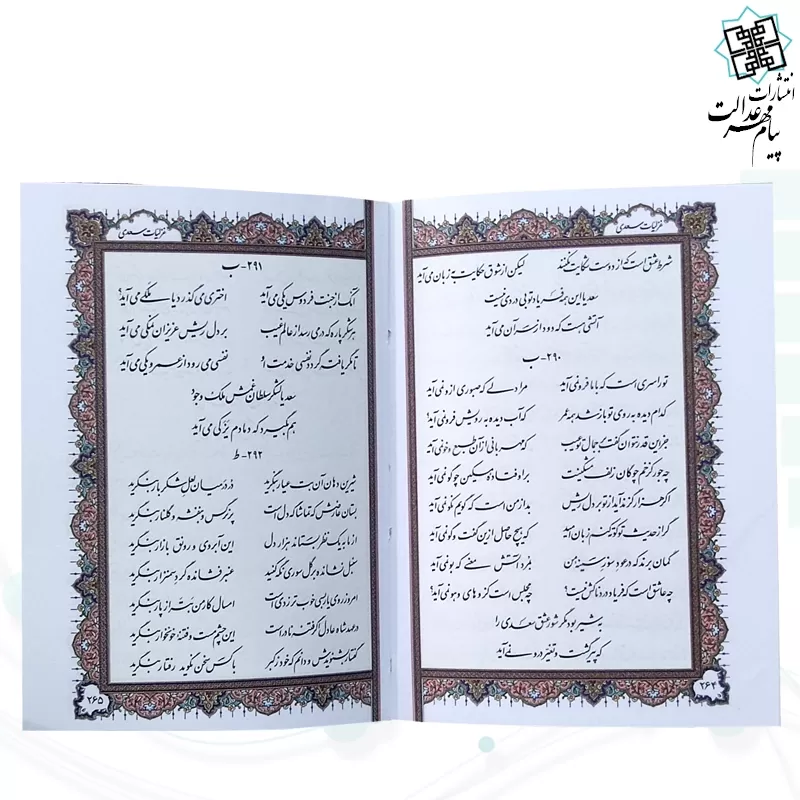 انتشارات
پیام مهر عدالت
غزلیات سعدی
شرط عشق است که از دوست شکایت نکنند لیکن از شوق حکایت به زبان می‌آید
سعدیا این همه فریاد تو بی دردی نیست
آتشی هست که دود از سر آن می‌آید
۲۹۰-ب
تو را سری است که با ما فرو نمی‌آید مرا دلی که صبوری از او نمی‌آید
کدام دیده به روی تو باز شد همه عمر که آب دیده به رویش فرو نمی‌آید؟
جز این قدر نتوان گفت بر جمال تو عیب که مهربانی از آن طبع و خو نمی‌آید
چه جور کز خم چوگان زلف مشکینت بر اوفتاده مسکین چو گو نمی‌آید
اگر هزار گزند آید از تو بر دل ریش بد از من است که گویم نکو نمی‌آید
گر از حدیث تو کوته کنم زبان امید که هیچ حاصل از این گفت و گو نمی‌آید
گمان برند که در عود سوز سینه من بمرد آتش معنی که بو نمی‌آید
چه عاشق است که فریاد دردناکش نیست؟ چه مجلس است کز او های و هو نمی‌آید
به شیر بود مگر شور عشق سعدی را
که پیر گشت و تغیر در او نمی‌آید
۲۶۴
غزلیات سعدی
۲۹۱-ب
آنک از جنت فردوس یکی می‌آید اختری می‌گذرد یا ملکی می‌آید؟
هر شکر پاره که در می‌رسد از عالم غیب بر دل ریش عزیزان نمکی می‌آید
تا مگر یافته گردد نفسی خدمت او نفسی می‌رود از عمر و یکی می‌آید
سعدیا لشکر سلطان غمش ملک وجود
هم بگیرد که دمادم یزکی می‌آید
۲۹۲-ط
شیرین دهان آن بت عیار بنگرید در در میان لعل شکربار بنگرید
بستان عارضش که تماشاگه دل است پر نرگس و بنفشه و گلنار بنگرید
از ما به یک نظر بستاند هزار دل این آبروی و رونق بازار بنگرید
سنبل نشانده بر گل سوری نگه کنید عنبر فشانده گرد سمنزار بنگرید
امروز روی یار بسی خوب‌تر ز دی است امسال کار من بتر از پار بنگرید
در عهد شاه عادل اگر فتنه نادر است این چشم مست و فتنه خونخوار بنگرید
گفتار بشنویدش و دانم که خود ز کبر با کس سخن نگوید رفتار بنگرید
۲۶۵